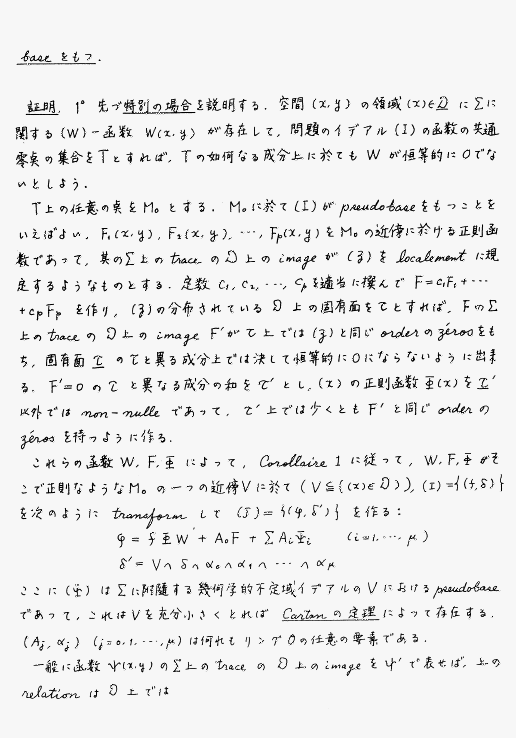 base をもつ.
証明. 1° 先づ特別の場合を説明する. 空間 (x, y) の領域 (x)∈𝔇 に Σ に
関する (W)-函数 W(x, y) が存在して, 問題のイデアル (I) の函数の共通
零点の集合を T とすれば, T の如何なる成分上に於ても W が恒等的に 0 でな
いとしよう.
T上の任意の点を M₀ とする. M₀ に於て (I) が pseudobase をもつことを
いえばよい. F₁(x, y), F₂(x, y), …, Fp(x, y) を M₀ の近傍に於ける正則函
数であって, 其の Σ 上の trace の 𝔇 上の image が (ʒ) を localement に規
定するようなものとする. 定数 c₁, c₂, …, cp を適当に撰んで F = c₁F₁ + …
+ cpFp を作り, (ʒ) の分布されている 𝔇 上の固有面を τ とすれば, F の Σ
上の trace の 𝔇 上の image F′ が τ 上では (ʒ) と同じ order の zéros をも
ち, 固有面 τ の τ と異る成分上では決して恒等的に 0 にならないように出来
る. F′ = 0 の τ と異なる成分の和を τ′ とし, (x) の正則函数 Φ(x) を τ′
以外では non-nulle であって, τ′ 上では少くとも F′ と同じ order の
zéros を持つように作る.
これらの函数 W, F, Φ によって, Corollaire 1 に従って, W, F, Φ がそ
こで正則なような M₀ の一つの近傍 V に於て (V ⊆ {(x)∈𝔇}), (I) = {(f, δ)}
を次のように transform して (J) = {(φ, δ′)} を作る:
φ = f Φ W + A₀F + ΣAᵢΦᵢ (i = 1, …, μ)
δ′ = V ∩ δ ∩ α₀ ∩ α₁ ∩ … ∩ αμ
ここに (Φ) は Σ に附随する幾何学的不定域イデアルの V における pseudobase
であって, これは V を充分小さくとれば Cartan の定理 によって存在する.
(Aⱼ, αⱼ) (j = 0, 1, …, μ) は何れもリング O の任意の要素である.
一般に函数 ψ(x, y) の Σ 上の trace の 𝔇 上の image を ψ′ で表せば, 上の
relation は 𝔇 上では